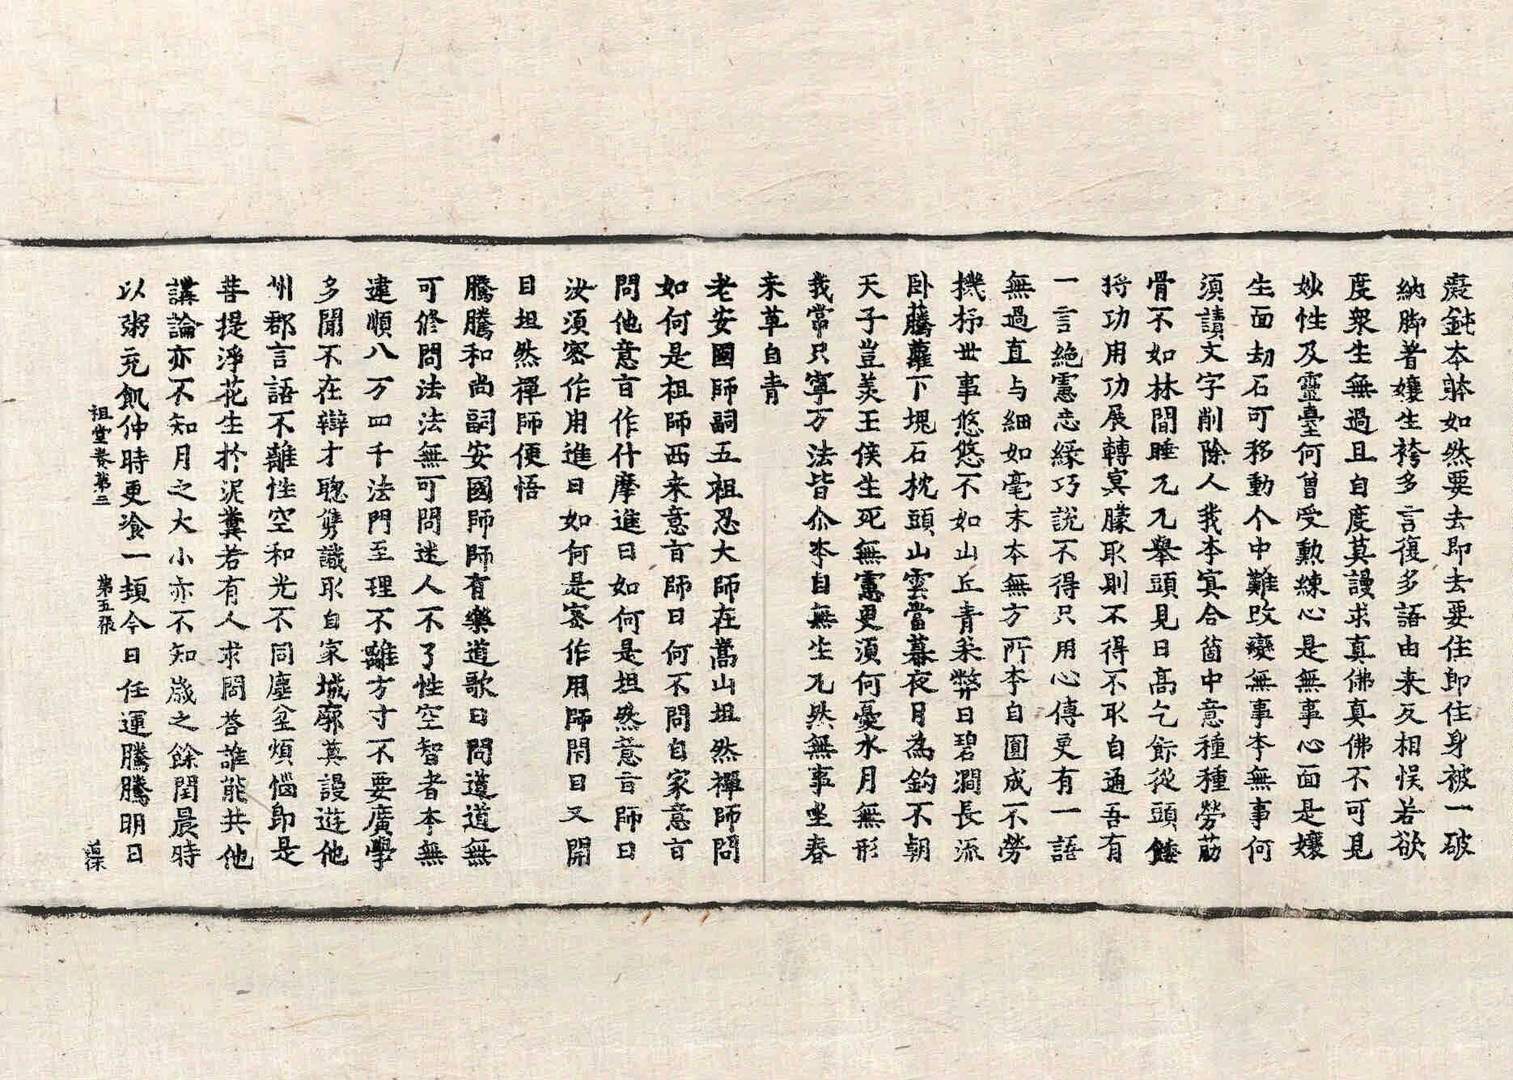 癡鈍本躰如然要去即去要住即住身被一破
納脚著孃生袴多言復多語由来反相悮若欲
度衆生無過且自度莫謾求真佛真佛不可見
妙性及靈臺何曾受勳練心是無事心面是孃
生面劫石可移動个中難改變無事本無事何
須讀文字削除人我本冥合箇中意種種勞筋
骨不如林間睡兀兀舉頭見日高乞飰從頭䬫
将功用功展轉冥朦取則不得不取自通吾有
一言絶慮忘緣巧說不得只用心傳更有一語
無過直与細如毫末本無方所本自圎成不勞
機杼世事悠悠不如山丘青松弊日碧澗長流
卧藤蘿下塊石枕頭山雲當幕夜月為鈎不朝
天子豈羡王侯生死無慮更須何憂水月無形
我常只寧万法皆尒本自無生兀然無事坐春
来草自青
老安國師嗣五祖忍大師在嵩山坦然禪師問
如何是祖師西来意旨師曰何不問自家意旨
問他意旨作什摩進曰如何是坦然意旨師曰
汝須密作用進曰如何是密作用師閇目又開
目坦然禪師便悟
騰騰和尚嗣安國師師有樂道歌曰問道道無
可修問法法無可問迷人不了性空智者本無
違順八万四千法門至理不離方寸不要廣學
多聞不在辯才聦雋識取自家城廓莫謾遊他
州郡言語不離性空和光不同塵坌煩惱即是
菩提淨花生於泥糞若有人求問荅誰能共他
講論亦不知月之大小亦不知歲之餘閏晨時
以粥充飢仲時更飡一頓今日任運騰騰明日
祖堂卷第三 第五張